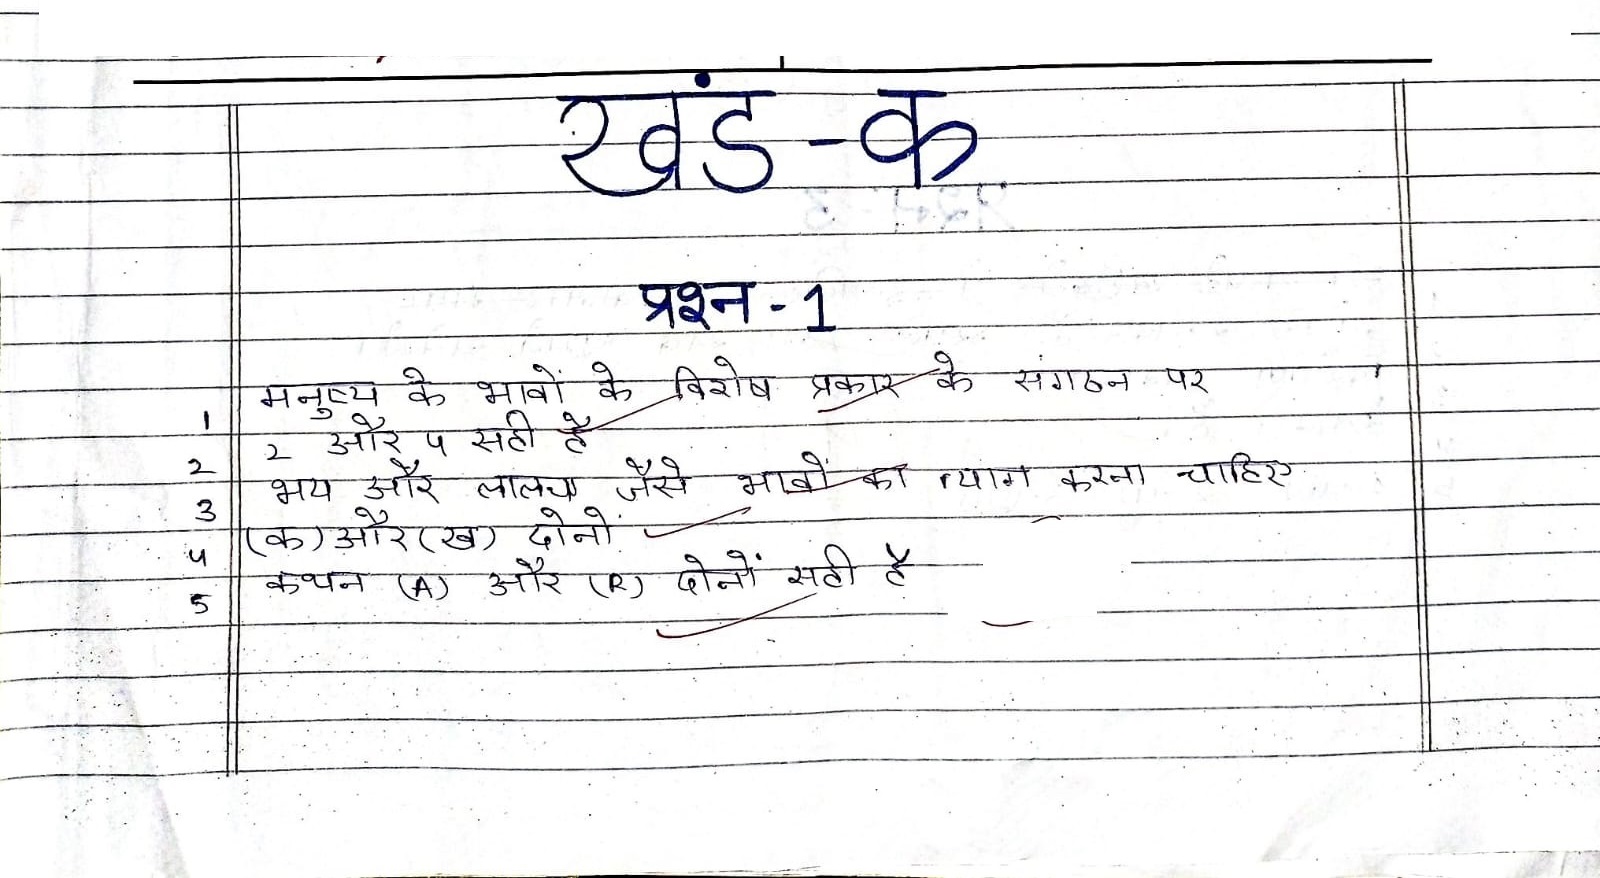 खंड-क
प्रश्न-1
1 मनुष्य के भावों के विशेष प्रकार के संगठन पर
2 2 और 4 सही है
3 भय और लालच जैसे भावों का त्याग करना चाहिए
4 (क) और (ख) दोनों
5 कथन (A) और (R) दोनों सही है